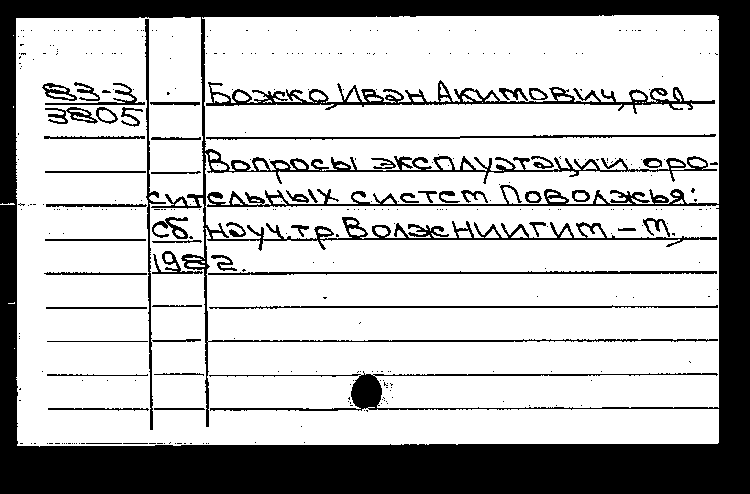 83-3 Божко, Иван Акимович, ред.
3805
Вопросы эксплуатации оро-
сительных систем Поволжья:
Сб. науч. тр. ВолжНИИГиМ. – М.,
1982.